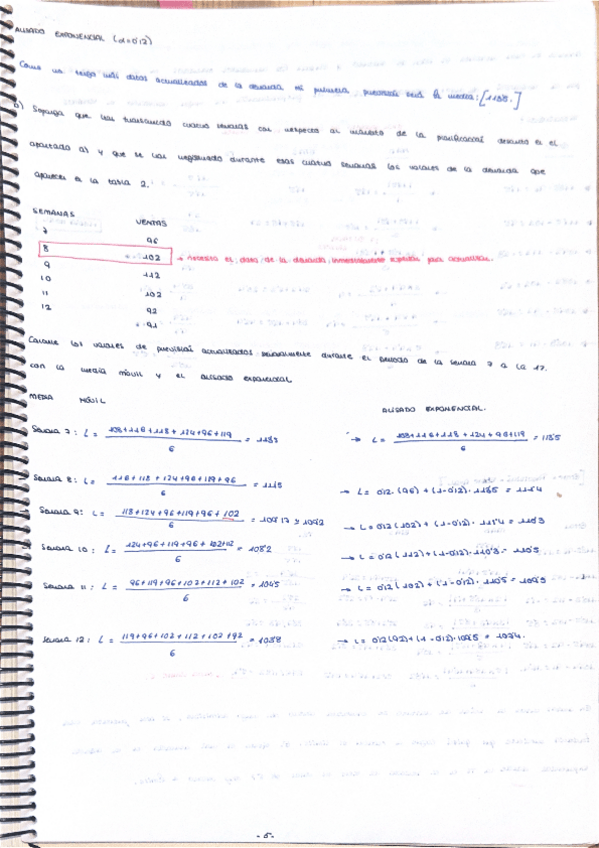 ALISADO EXPONENCIAL (α=0'2)
Como no tengo más datos actualizados de la demanda mi primera previsión será la media: [1188.]
b) Suponga que han transcurrido cuatro semanas con respecto al momento de la planificación descrito en el
apartado a) y que se han registrado durante esas cuatro semanas los valores de la demanda que
aparecen en la tabla 2.
SEMANAS VENTAS
7 96
8 102 → necesito el dato de la demanda inmediatamente anterior para actualizar.
9 112
10 102
11 92
12 91
Calcule los valores de previsión actualizados semanalmente durante el periodo de la semana 7 a la 12.
con la media móvil y el alisado exponencial
MEDIA MÓVIL ALISADO EXPONENCIAL.
Semana 7: L = 108+116+118+124+96+119 / 6 = 1183 → L = 108+116+118+124+96+119 / 6 = 1185
Semana 8: L = 116+118+124+96+119+96 / 6 = 1115 → L = 0'2·(96)+(1-0'2)·1185 = 1114
Semana 9: L = 118+124+96+119+96+102 / 6 = 109'17 ≈ 1092 → L = 0'2(102)+(1-0'2)·111'4 = 1103
Semana 10: L = 124+96+119+96+102+112 / 6 = 1082 → L = 0'2(112)+(1-0'2)·110'3 = 1105
Semana 11: L = 96+119+96+102+112+102 / 6 = 1045 → L = 0'2(102)+(1-0'2)·1105 = 1093
Semana 12: L = 119+96+102+112+102+92 / 6 = 1038 → L = 0'2(92)+(1-0'2)·1093 = 1094.
-5-